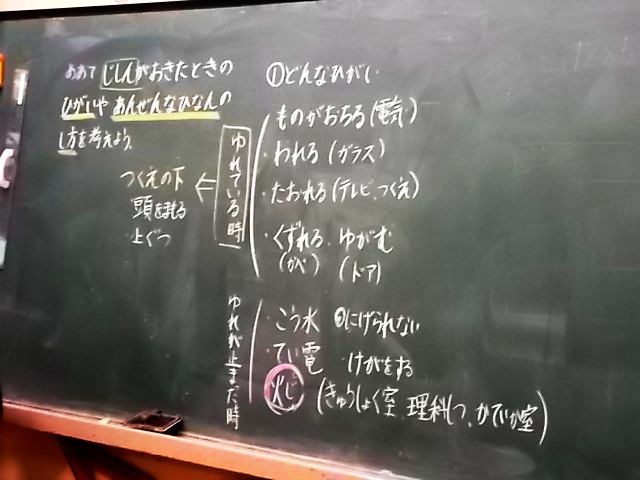 めあて じしんがおきたときの
ひがいや あんぜんなひなんの
し方を考えよう。
つくえの下
頭をまもる
上ぐつ
ゆれている時
①どんなひがい
ものがおちる(電気)
・われる(ガラス)
・たおれる(テレビ、つくえ)
・くずれる ゆがむ
(かべ) (ドア)
ゆれが止まった時
・こう水 にげられない
・てい電 けがをする
火じ (きゅうしょく室、理科しつ、かていか室)